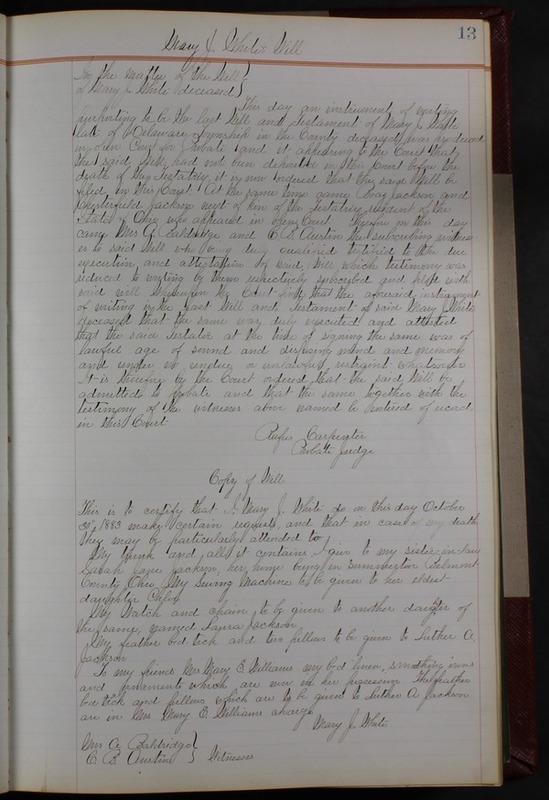 13
Mary J. White Will
In the matter of the Will
of Mary J. White deceased
This day an instrument of writing
purporting to be the last Will and Testament of Mary J. White
late of Delaware Township in the County deceased was produced
in open Court for Probate and it appearing to the Court that
the said Will had not been deposited in this Court before the
death of the Testatrix, it is now ordered that the said Will be
filed in this Court. At the same time came Jackson and
Chesterfield Jackson next of kin of the Testatrix resident of the
State of Ohio who appeared in open Court. Therefore on this day
came Mrs A. Baldridge and C. B. Austin the subscribing witness
es to said Will who being duly qualified testified to the due
execution and attestation of said Will which testimony was
reduced to writing by them respectively subscribed and filed with
said will Whereupon the Court find that the aforesaid instrument
of writing is the Last Will and Testament of said Mary J White
deceased that the same was duly executed and attested
that the said Testator at the time of signing the same was of
lawful age of sound and disposing mind and memory
and under no undue or unlawful restraint whatsoever
It is therefore by the Court ordered that the said Will be
admitted to probate and that the same together with the
testimony of the witnesses above named be entered of record
in this Court
Rufus Carpenter
Probate Judge
Copy of Will
This is to certify that I, Mary J. White do on this day October
30th 1883 make certain requests, and that in case of my death
they may be particularly attended to
My trunk and all it contains I give to my sister-in-law
Sarah Jane Jackson, her home being in Summerton Belmont
County, Ohio. My Sewing Machine to be given to her eldest
daughter Chloe
My Watch and chain, to be given to another daughter of
the same, named Laura Jackson.
My feather bed tick and two pillows to be given to Luther A
Jackson
To my friend Mrs Mary E. Williams my bed linen, smoothing irons
and ornaments which are now in her possession The feather
bed tick and pillows which are to be given to Luther A Jackson
are in Mrs Mary E. Williams charge
Mary J. White
Mrs A. Baldridge
C. B. Austin } Witnesses